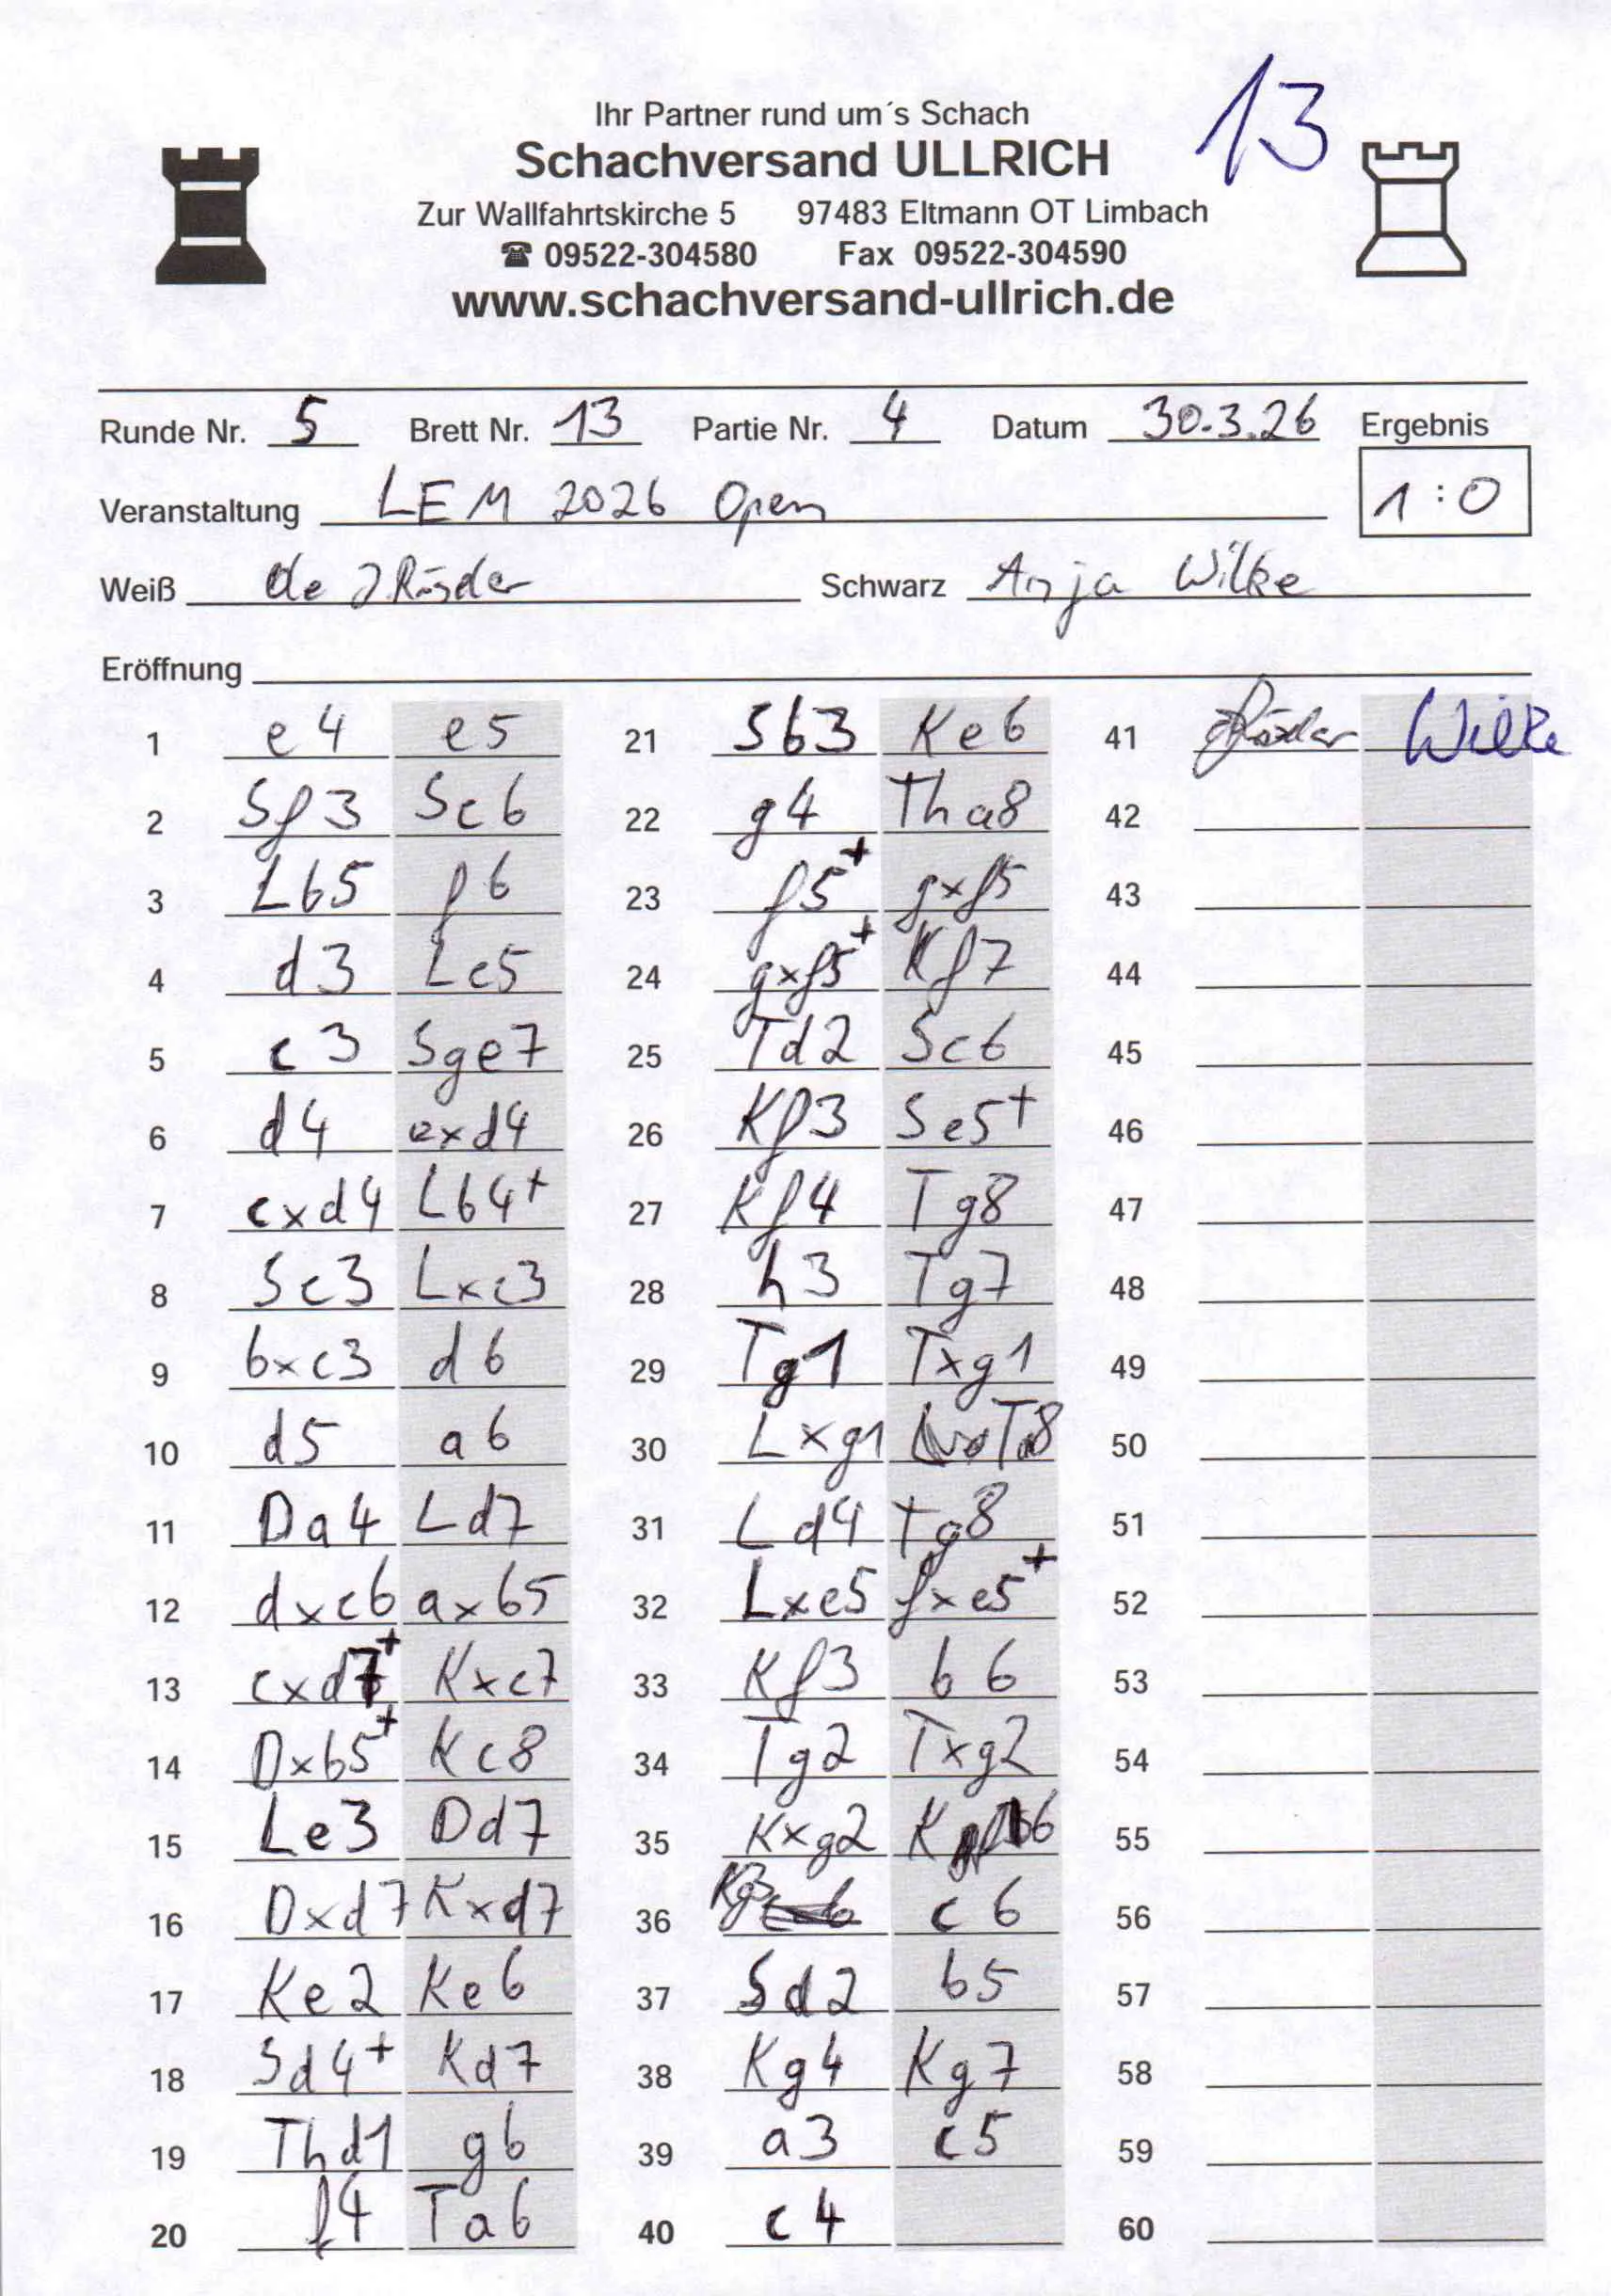 13
Ihr Partner rund um´s Schach
Schachversand ULLRICH
Zur Wallfahrtskirche 5 97483 Eltmann OT Limbach
☎ 09522-304580 Fax 09522-304590
www.schachversand-ullrich.de
Runde Nr. 5 Brett Nr. 13 Partie Nr. 4 Datum 30.3.26 Ergebnis
1:0
Veranstaltung LEM 2026 Open
Weiß de Schwarz Anja Wilke
Eröffnung
1 e4 e5 21 Sb3 Ke6 41 Wilke
2 Sf3 Sc6 22 g4 Tha8 42
3 Lb5 f6 23 f5+ gxf5 43
4 d3 Lc5 24 gxf5+ Kf7 44
5 c3 Sge7 25 Td2 Sc6 45
6 d4 exd4 26 Kf3 Se5+ 46
7 cxd4 Lb4+ 27 Kf4 Tg8 47
8 Sc3 Lxc3 28 h3 Tg7 48
9 bxc3 d6 29 Tg1 Txg1 49
10 d5 a6 30 Lxg1 50
11 Da4 Ld7 31 Ld4 Tg8 51
12 dxc6 axb5 32 Lxe5 fxe5+ 52
13 cxd7+ Kxc7 33 Kf3 b6 53
14 Dxb5+ Kc8 34 Tg2 Txg2 54
15 Le3 Dd7 35 Kxg2 55
16 Dxd7 Kxd7 36 Kg3 c6 56
17 Ke2 Ke6 37 Sd2 b5 57
18 Sd4+ Kd7 38 Kg4 Kg7 58
19 Thd1 g6 39 a3 c5 59
20 f4 Ta6 40 c4 60